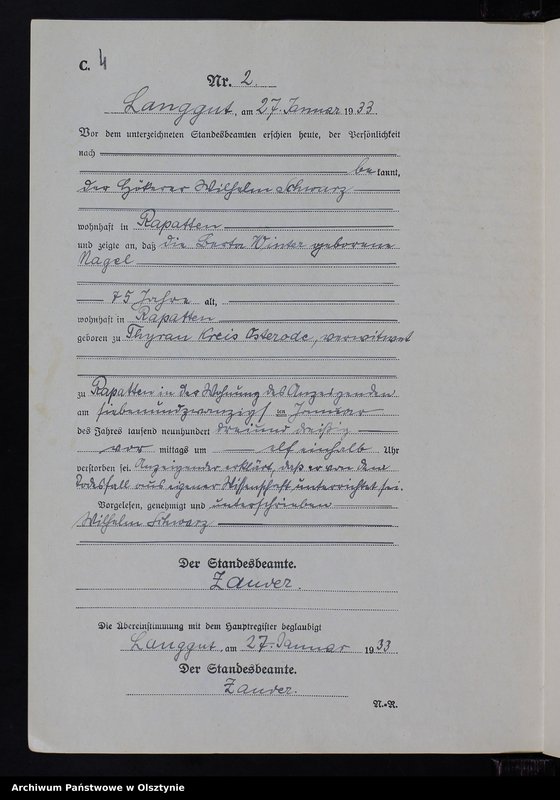 C. 4
Nr. 2.
Langgut, am 27. Januar 1933.
Vor dem unterzeichneten Standesbeamten erschien heute, der Persönlichkeit
nach
bekannt,
der Hökerer Wilhelm Schwarz
wohnhaft in Rapatten
und zeigte an, daß die Berta Winter geborene
Nagel
75 Jahre alt,
wohnhaft in Rapatten
geboren zu Thyrau Kreis Osterode, verwitwet
zu Rapatten in der Wohnung des Anzeigenden
am siebenundzwanzigsten Januar
des Jahres tausend neunhundert dreiund dreißig
vor mittags um elf einhalb Uhr
verstorben sei. Anzeigender erklärt, daß er von dem
Todesfall aus eigener Wissenschaft unterrichtet sei.
Vorgelesen, genehmigt und unterschrieben
Wilhelm Schwarz
Der Standesbeamte.
Zander.
Die Übereinstimmung mit dem Hauptregister beglaubigt
Langgut, am 27. Januar 1933.
Der Standesbeamte.
Zander.
N.-R.
Archiwum Państwowe w Olsztynie